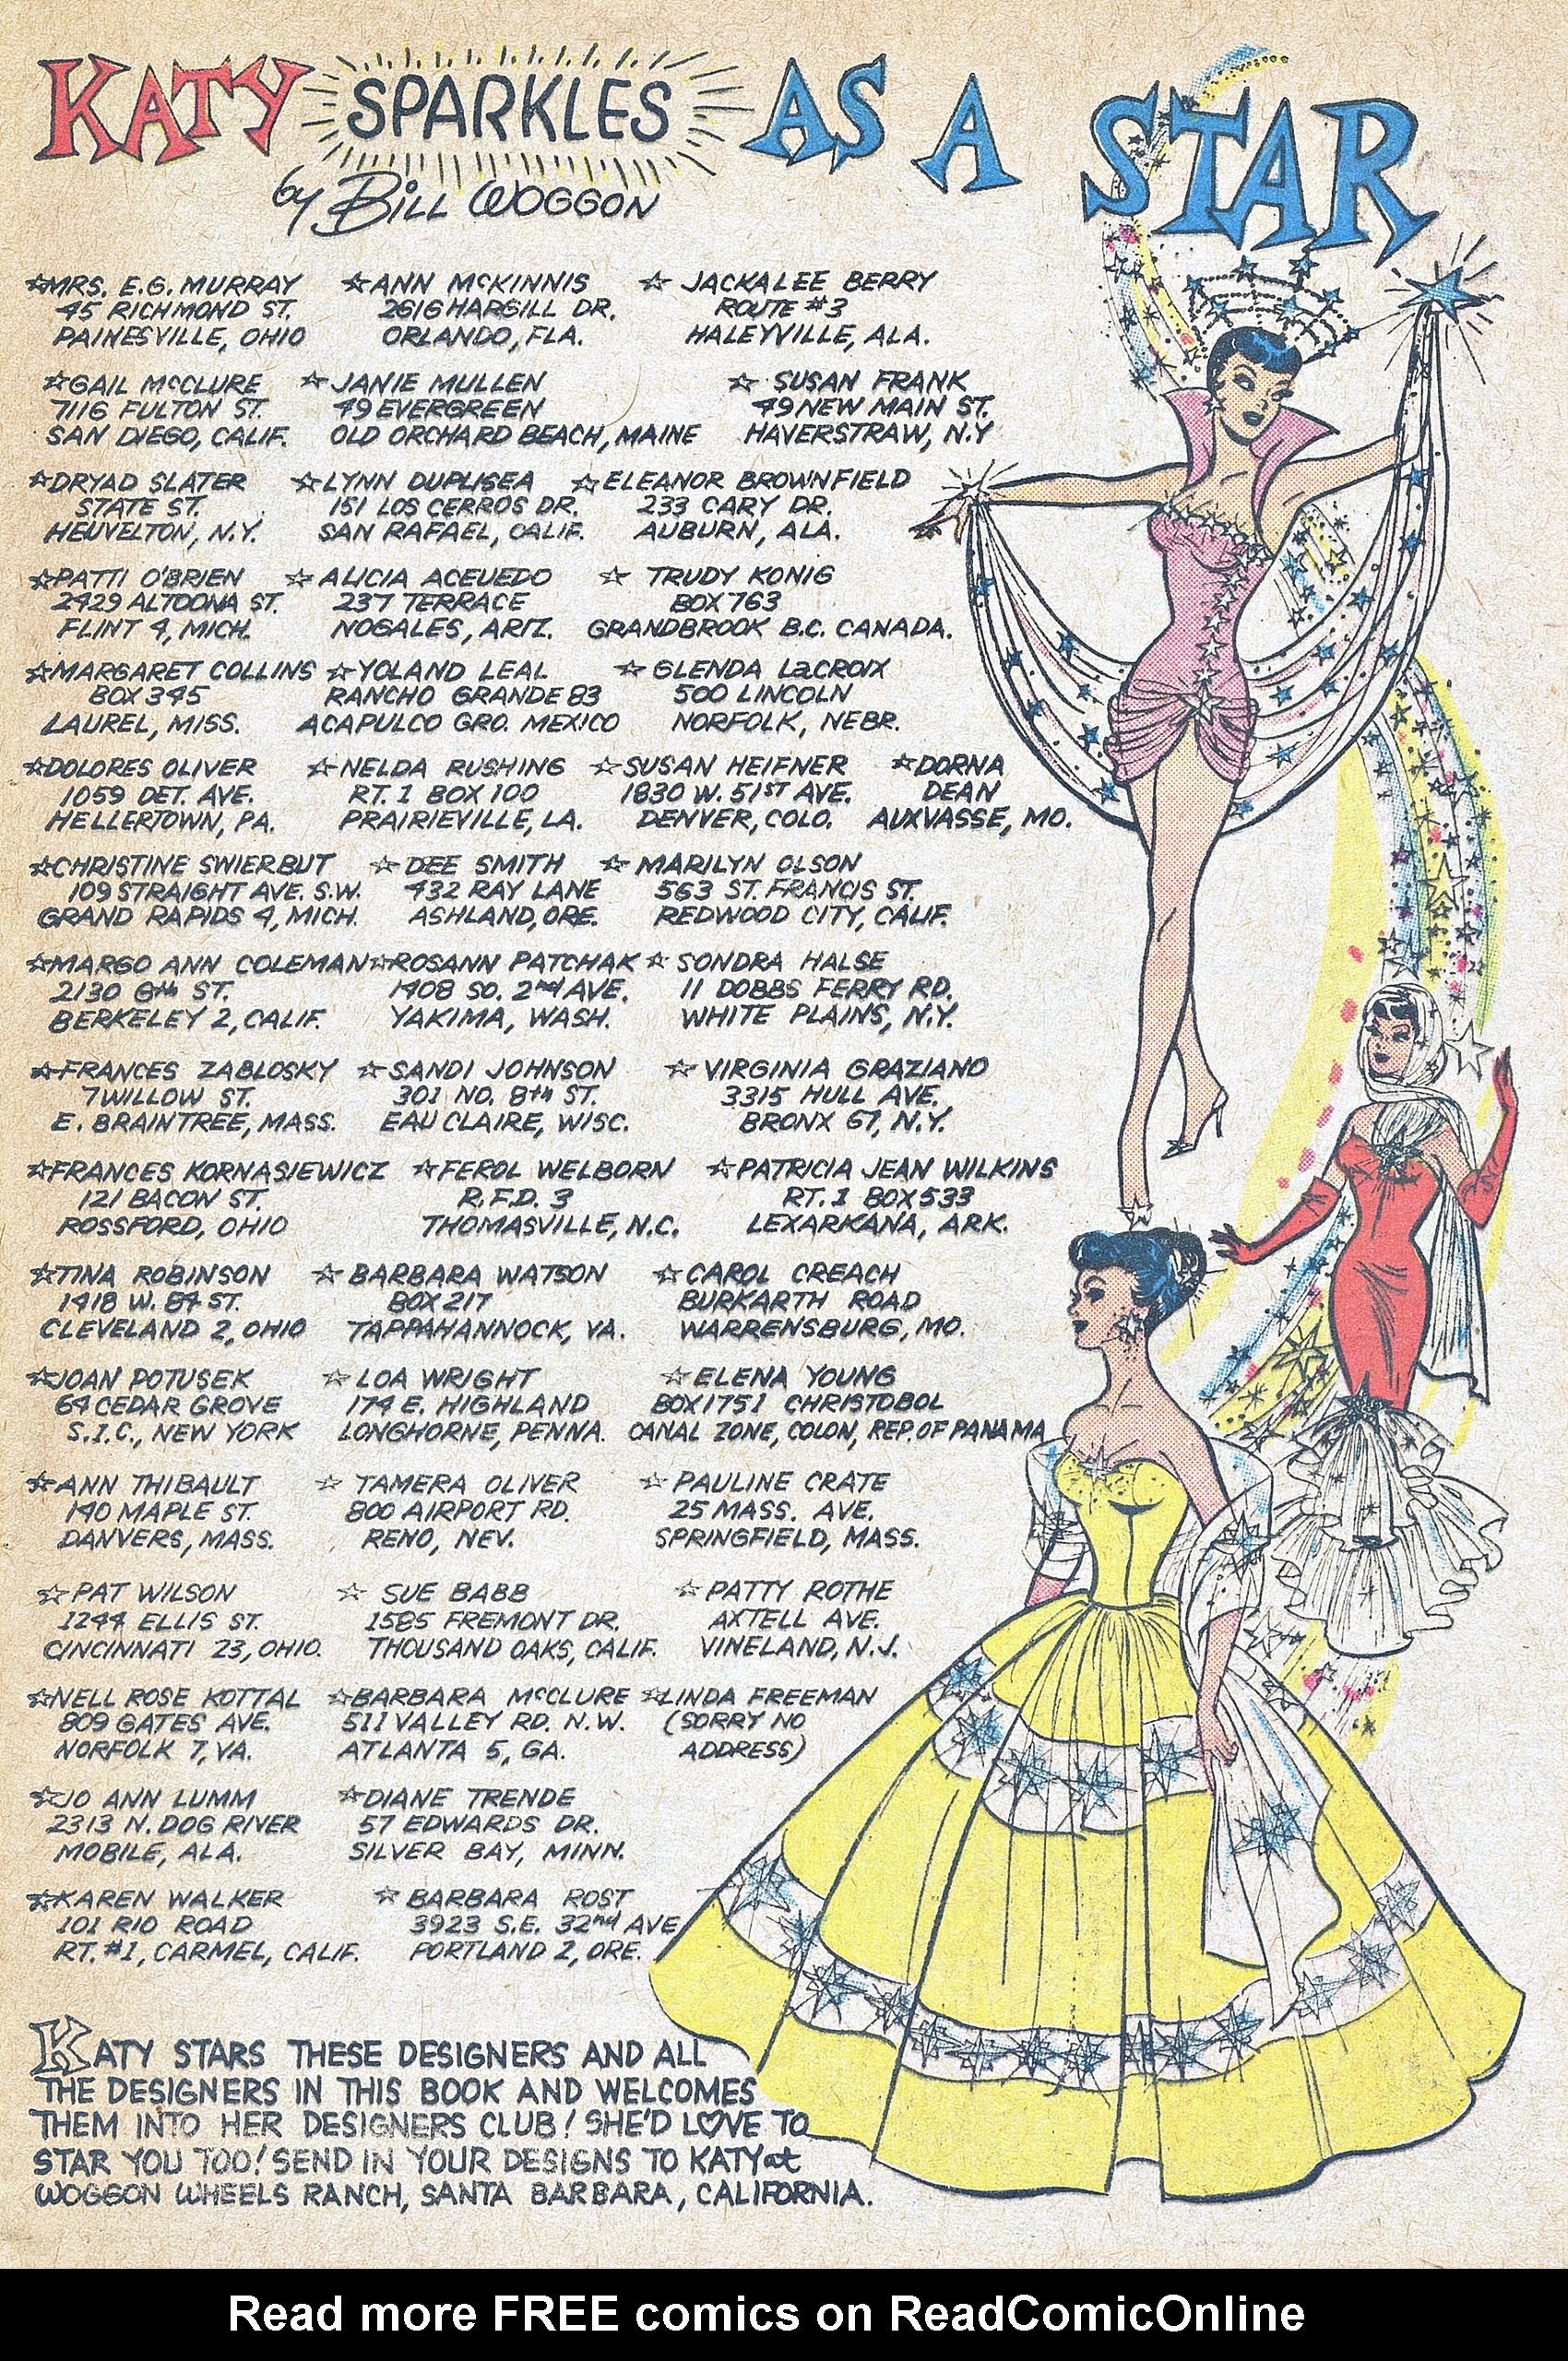 KATY SPARKLES AS A STAR
by BILL WOGGON
☆MRS. E.G. MURRAY ☆ANN McKINNIS ☆ JACKALEE BERRY
45 RICHMOND ST. 2616 HARGILL DR. ROUTE #3
PAINESVILLE, OHIO ORLANDO, FLA. HALEYVILLE, ALA.
☆GAIL McCLURE ☆JANIE MULLEN ☆ SUSAN FRANK
7116 FULTON ST. 49 EVERGREEN 49 NEW MAIN ST.
SAN DIEGO, CALIF. OLD ORCHARD BEACH, MAINE HAVERSTRAW, N.Y
☆DRYAD SLATER ☆LYNN DUPLISEA ☆ELEANOR BROWNFIELD
STATE ST. 151 LOS CERROS DR. 233 CARY DR.
HEUVELTON, N.Y. SAN RAFAEL, CALIF. AUBURN, ALA.
☆PATTI O'BRIEN ☆ALICIA ACEVEDO ☆ TRUDY KONIG
2429 ALTOONA ST. 237 TERRACE BOX 763
FLINT 4, MICH. NOGALES, ARIZ. GRANDBROOK B.C. CANADA.
☆MARGARET COLLINS ☆YOLAND LEAL ☆ GLENDA LaCROIX
BOX 345 RANCHO GRANDE 83 500 LINCOLN
LAUREL, MISS. ACAPULCO GRO. MEXICO NORFOLK, NEBR.
☆DOLORES OLIVER ☆NELDA RUSHING ☆SUSAN HEIFNER ☆DORNA
1059 DET. AVE. RT. 1 BOX 100 1830 W. 51ST AVE. DEAN
HELLERTOWN, PA. PRAIRIEVILLE, LA. DENVER, COLO. AUXVASSE, MO.
☆CHRISTINE SWIERBUT ☆ DEE SMITH ☆ MARILYN OLSON
109 STRAIGHT AVE. S.W. 432 RAY LANE 563 ST. FRANCIS ST.
GRAND RAPIDS 4, MICH. ASHLAND, ORE. REDWOOD CITY, CALIF.
☆MARGO ANN COLEMAN ☆ROSANN PATCHAK ☆ SONDRA HALSE
2130 6th ST. 1408 SO. 2nd AVE. 11 DOBBS FERRY RD.
BERKELEY 2, CALIF. YAKIMA, WASH. WHITE PLAINS, N.Y.
☆FRANCES ZABLOSKY ☆SANDI JOHNSON ☆VIRGINIA GRAZIANO
7 WILLOW ST. 301 NO. 8th ST. 3315 HULL AVE.
E. BRAINTREE, MASS. EAU CLAIRE, WISC. BRONX 67, N.Y.
☆FRANCES KORNASIEWICZ ☆FEROL WELBORN ☆PATRICIA JEAN WILKINS
121 BACON ST. R.F.D. 3 RT. 1 BOX 533
ROSSFORD, OHIO THOMASVILLE, N.C. LEXARKANA, ARK.
☆TINA ROBINSON ☆ BARBARA WATSON ☆CAROL CREACH
1418 W. 84 ST. BOX 217 BURKARTH ROAD
CLEVELAND 2, OHIO TAPPAHANNOCK, VA. WARRENSBURG, MO.
☆JOAN POTUSEK ☆ LOA WRIGHT ☆ELENA YOUNG
64 CEDAR GROVE 174 E. HIGHLAND BOX 1751 CHRISTOBOL
S.I.C., NEW YORK LONGHORNE, PENNA. CANAL ZONE, COLON, REP. OF PANAMA
☆ANN THIBAULT ☆ TAMERA OLIVER ☆ PAULINE CRATE
140 MAPLE ST. 800 AIRPORT RD. 25 MASS. AVE.
DANVERS, MASS. RENO, NEV. SPRINGFIELD, MASS.
☆ PAT WILSON ☆ SUE BABB ☆PATTY ROTHE
1244 ELLIS ST. 1585 FREMONT DR. AXTELL AVE.
CINCINNATI 23, OHIO. THOUSAND OAKS, CALIF. VINELAND, N.J.
☆NELL ROSE KOTTAL ☆BARBARA McCLURE ☆LINDA FREEMAN
809 GATES AVE. 511 VALLEY RD. N.W. (SORRY NO
NORFOLK 7, VA. ATLANTA 5, GA. ADDRESS)
☆JO ANN LUMM ☆DIANE TRENDE
2313 N. DOG RIVER 57 EDWARDS DR.
MOBILE, ALA. SILVER BAY, MINN.
☆KAREN WALKER ☆ BARBARA ROST
101 RIO ROAD 3923 S.E. 32nd AVE
RT. #1, CARMEL, CALIF. PORTLAND 2, ORE.
KATY STARS THESE DESIGNERS AND ALL
THE DESIGNERS IN THIS BOOK AND WELCOMES
THEM INTO HER DESIGNERS CLUB! SHE'D L♡VE TO
STAR YOU TOO! SEND IN YOUR DESIGNS TO KATY at
WOGGON WHEELS RANCH, SANTA BARBARA, CALIFORNIA.
Read more FREE comics on ReadComicOnline